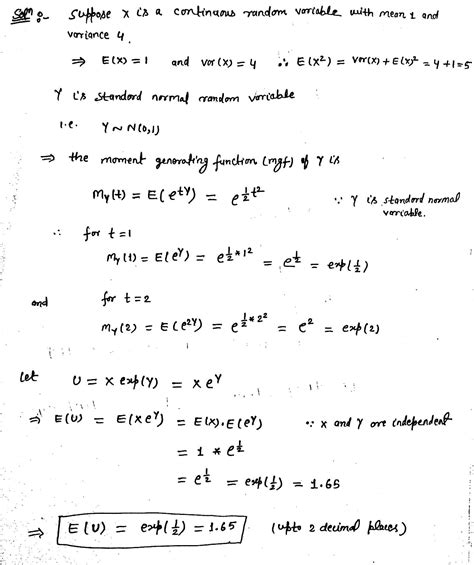 Solⁿ :- Suppose X is a continuous random variable with mean 1 and
variance 4.
⇒ E(X) = 1 and var(X) = 4 ∴ E(X²) = var(X) + E(X)² = 4+1=5
Y is standard normal random variable
i.e. Y ~ N(0,1)
⇒ the moment generating function (mgf) of Y is
My(t) = E(e^{tY}) = e^{½t²} ∵ Y is standard normal
variable.
∴ for t=1
My(1) = E(e^Y) = e^{½*1²} = e^{½} = exp(½)
and for t=2
My(2) = E(e^{2Y}) = e^{½*2²} = e² = exp(2)
let U = X exp(Y) = X e^Y
⇒ E(U) = E(Xe^Y) = E(X).E(e^Y) ∵ X and Y are independent
= 1 * e^{½}
= e^{½} = exp(½) = 1.65
⇒ E(U) = exp(½) = 1.65 (upto 2 decimal places)